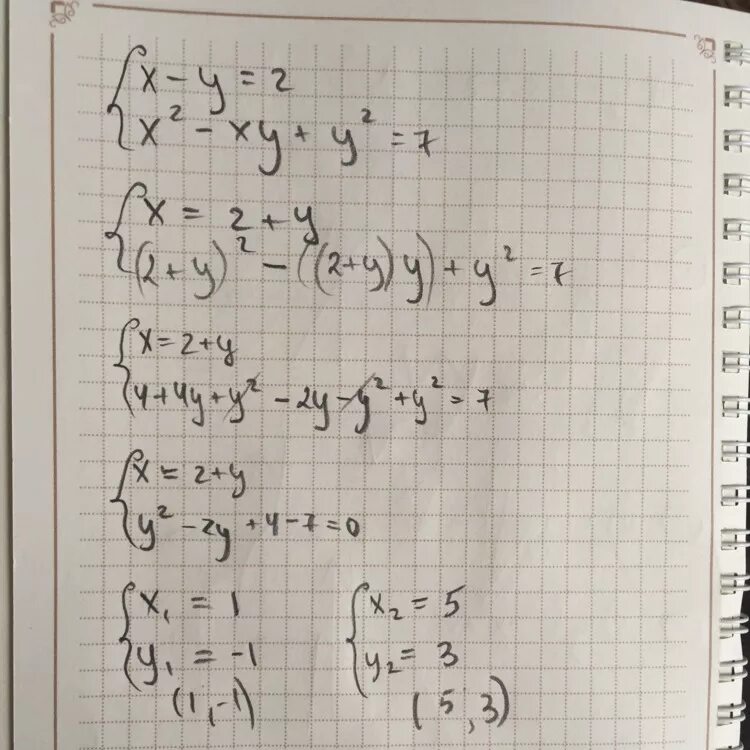 x - y = 2
x² - xy + y² = 7
x = 2 + y
(2 + y)² - ((2 + y) y) + y² = 7
x = 2 + y
4 + 4y + y² - 2y - y² + y² = 7
x = 2 + y
y² - 2y + 4 - 7 = 0
x₁ = 1 x₂ = 5
y₁ = -1 y₂ = 3
(1, -1) (5, 3)